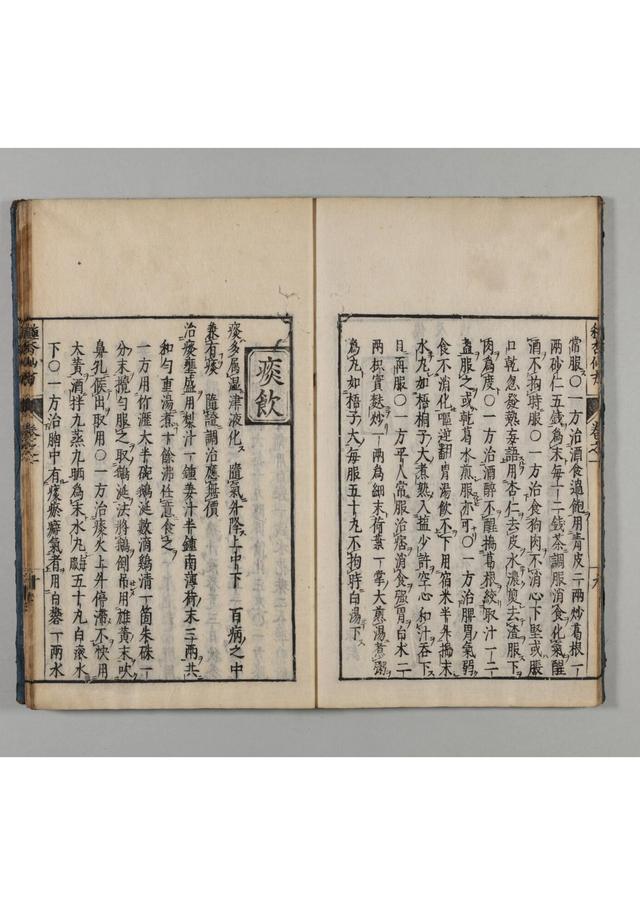 常服〇一方治酒食過飽用青皮二兩炒葛根一
兩砂仁五錢爲末每一二錢茶調服消食化氣醒
酒不拘時服〇一方治食狗肉不消心下堅或脹
口乾忽發熱妄語用杏仁去皮水濃煎去渣服下
肉爲度〇一方治酒醉不醒搗葛根絞取汁一二
盞服之或乾葛水煎服亦可〇一方治脾胃氣弱
食不消化嘔逆翻胃湯飲不下用粟米半升搗末
水丸如梧桐子大煮熟入塩少許空心和汁吞下
日再服〇一方平人常服治痞消食強胃白朮二
兩枳實麩炒一兩爲細末荷葉一掌大煎湯煮粥
爲丸如梧子大每服五十丸不拘時白湯下
種杏仙方
卷之一
九
痰飲
痰多屬温津液化 隨氣升降上中下 百病之中
兼有痰 隨證調治應無價
治痰壅盛用梨汁一鍾姜汁半鍾南薄荷末三兩共
和勻重湯煮十餘沸任意食之
一方用竹瀝大半碗鵝涎數滴鷄清一箇朱硃一
分末攪勻服之取鵝涎法將鵝倒吊用雄黃末吹
鼻孔候出取用〇一方治痰火上升停滯不快用
大黃酒拌九蒸九晒爲末水丸每五十丸白滾水
下〇一方治胸中有痰瘀癖氣者用白礬一兩水
種杏仙方
卷之一
十